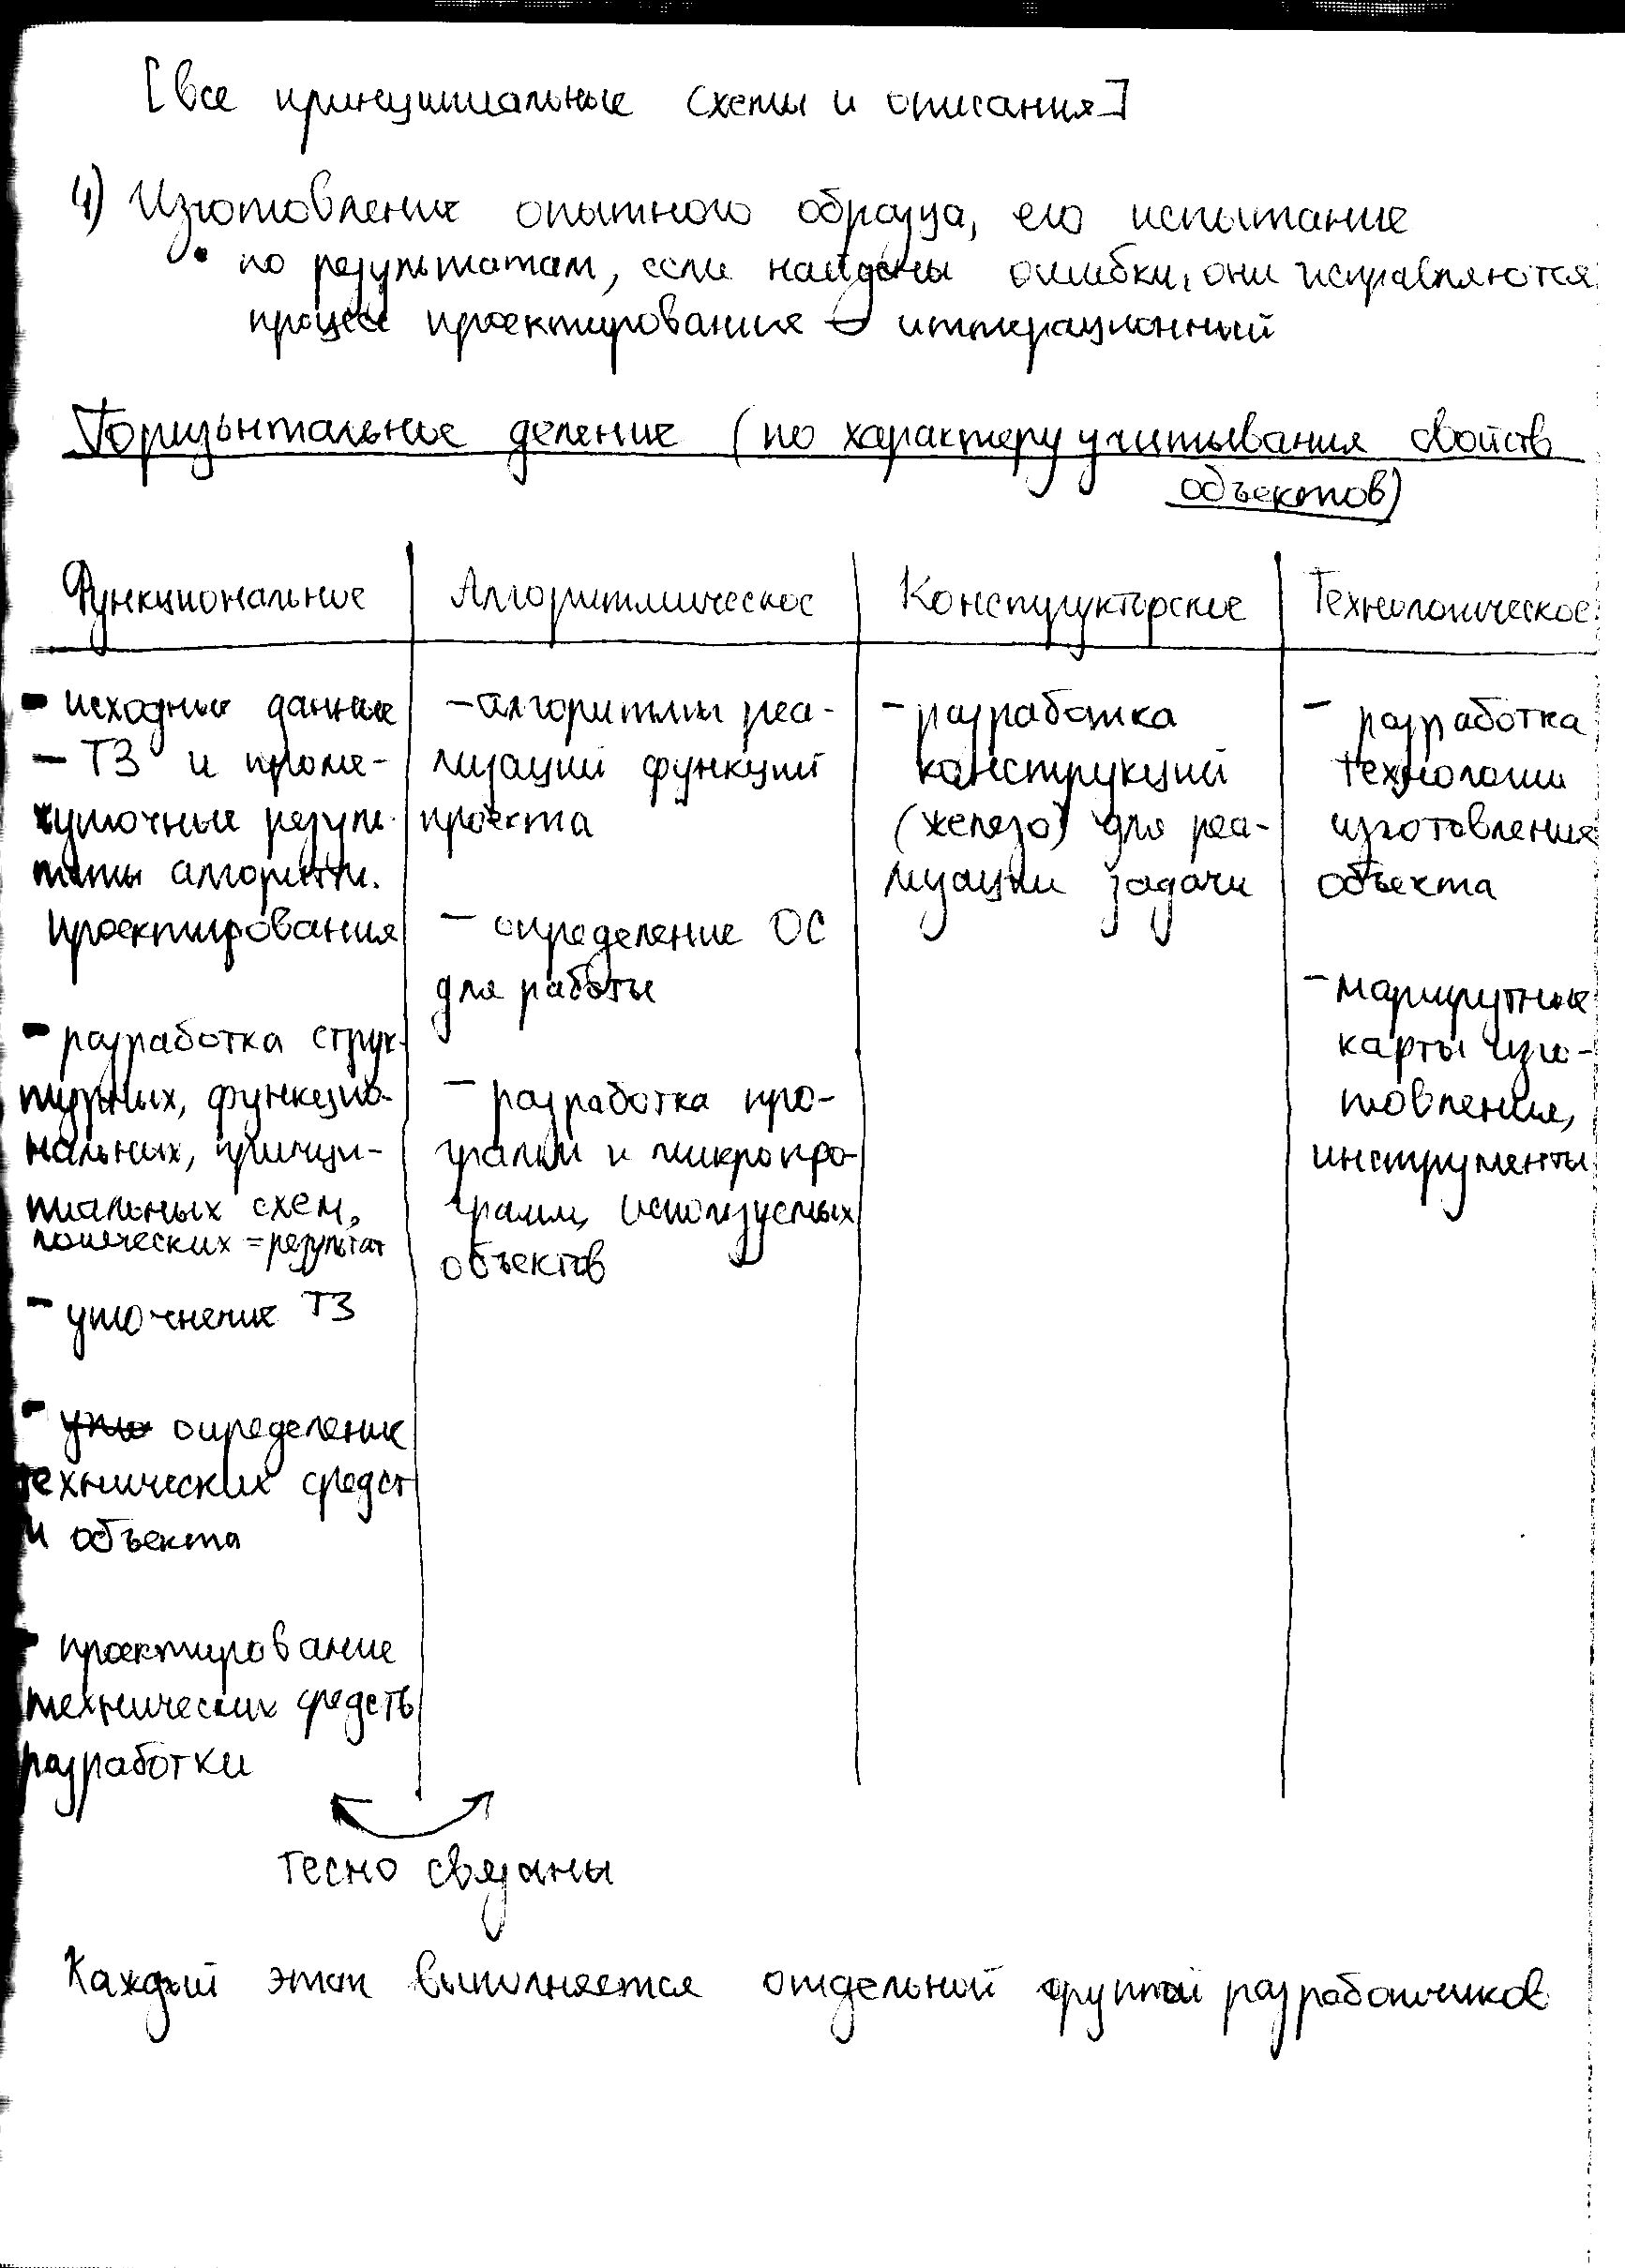 [все принципиальные схемы и описания]
4) Изготовление опытного образца, его испытание
• по результатам, если найдены ошибки, они исправляются
процесс проектирования – иттерационный
Горизонтальное деление (по характеру учитывания свойств
объектов)
Функциональное
- исходные данные
- ТЗ и проме-
жуточные резуль-
таты алгоритм.
проектирования
- разработка струк-
турных, функцио-
нальных, принци-
пиальных схем,
логических = результат
- уточнение ТЗ
- определение
технических средст
и объекта
- проектирование
технических средств
разработки
Алгоритмическое
- алгоритмы реа-
лизации функций
проекта
- определение ОС
для работы
- разработка про-
грамм и микропро-
грамм, используемых
объектов
Конструкторские
- разработка
конструкций
(железо) для реа-
лизации задачи
Технологическое
- разработка
технологии
изготовления
объекта
- маршрутные
карты изго-
товления,
инструменты
тесно связаны
Каждый этап выполняется отдельной группой разработчиков